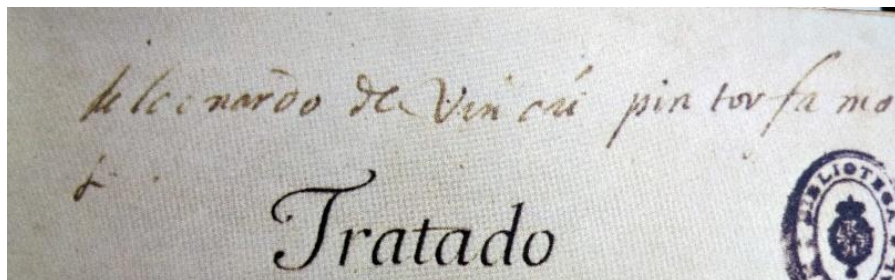 de leonardo de Vincii pintor famo
Tratado
BIBLIOTECA